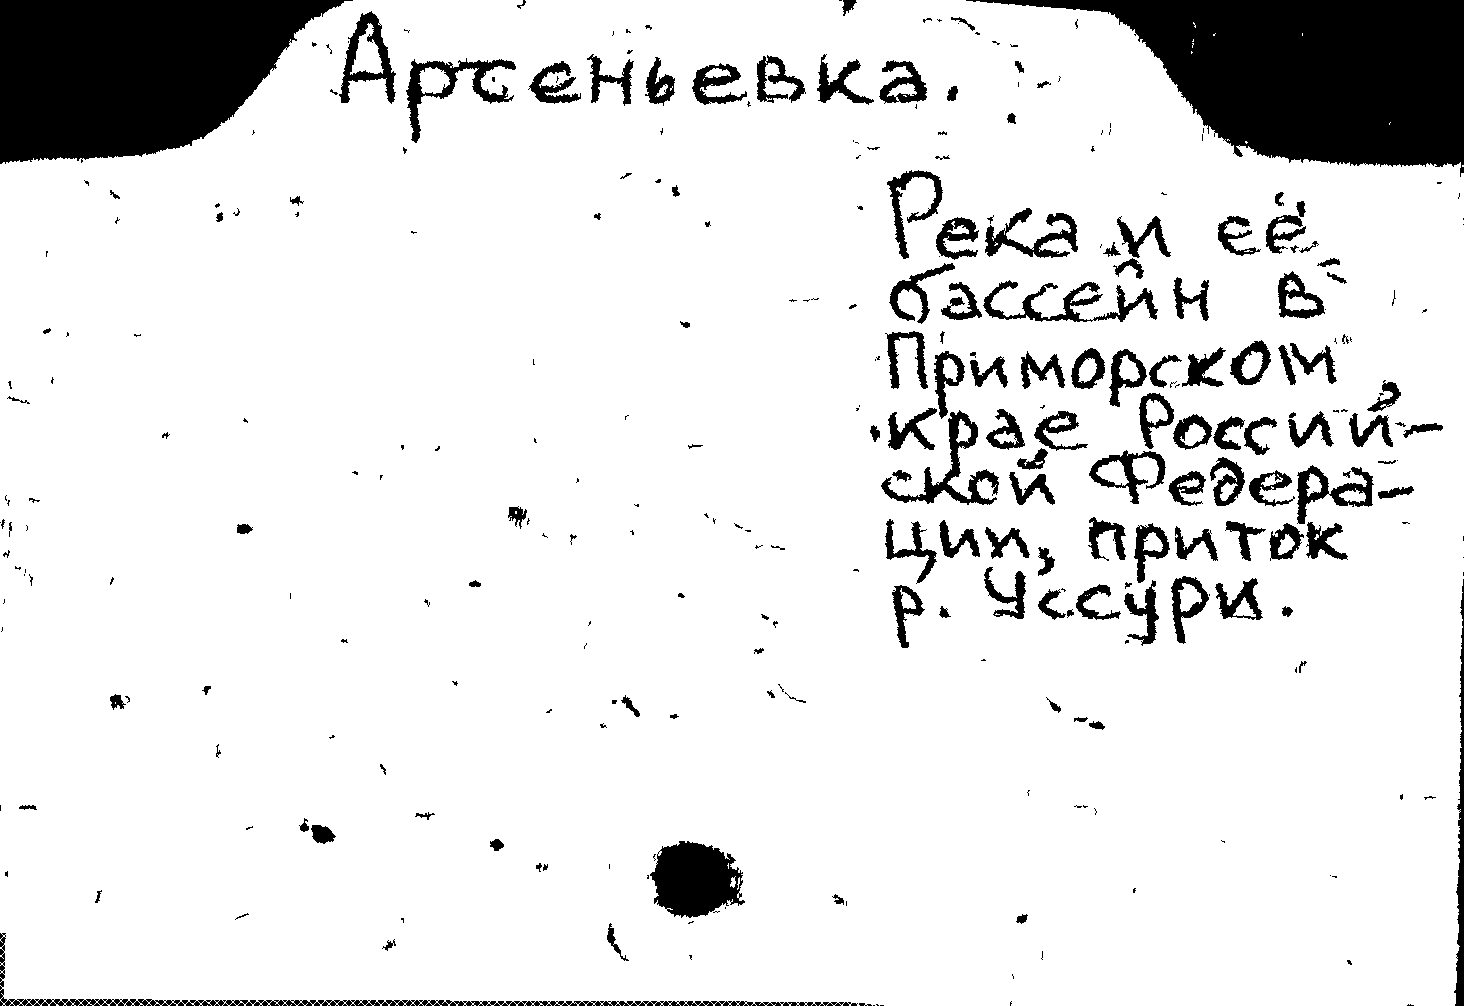 Арсеньевка.
Река и её
бассейн в
Приморском
крае Россий-
ской Федера-
ции, приток
р. Уссури.